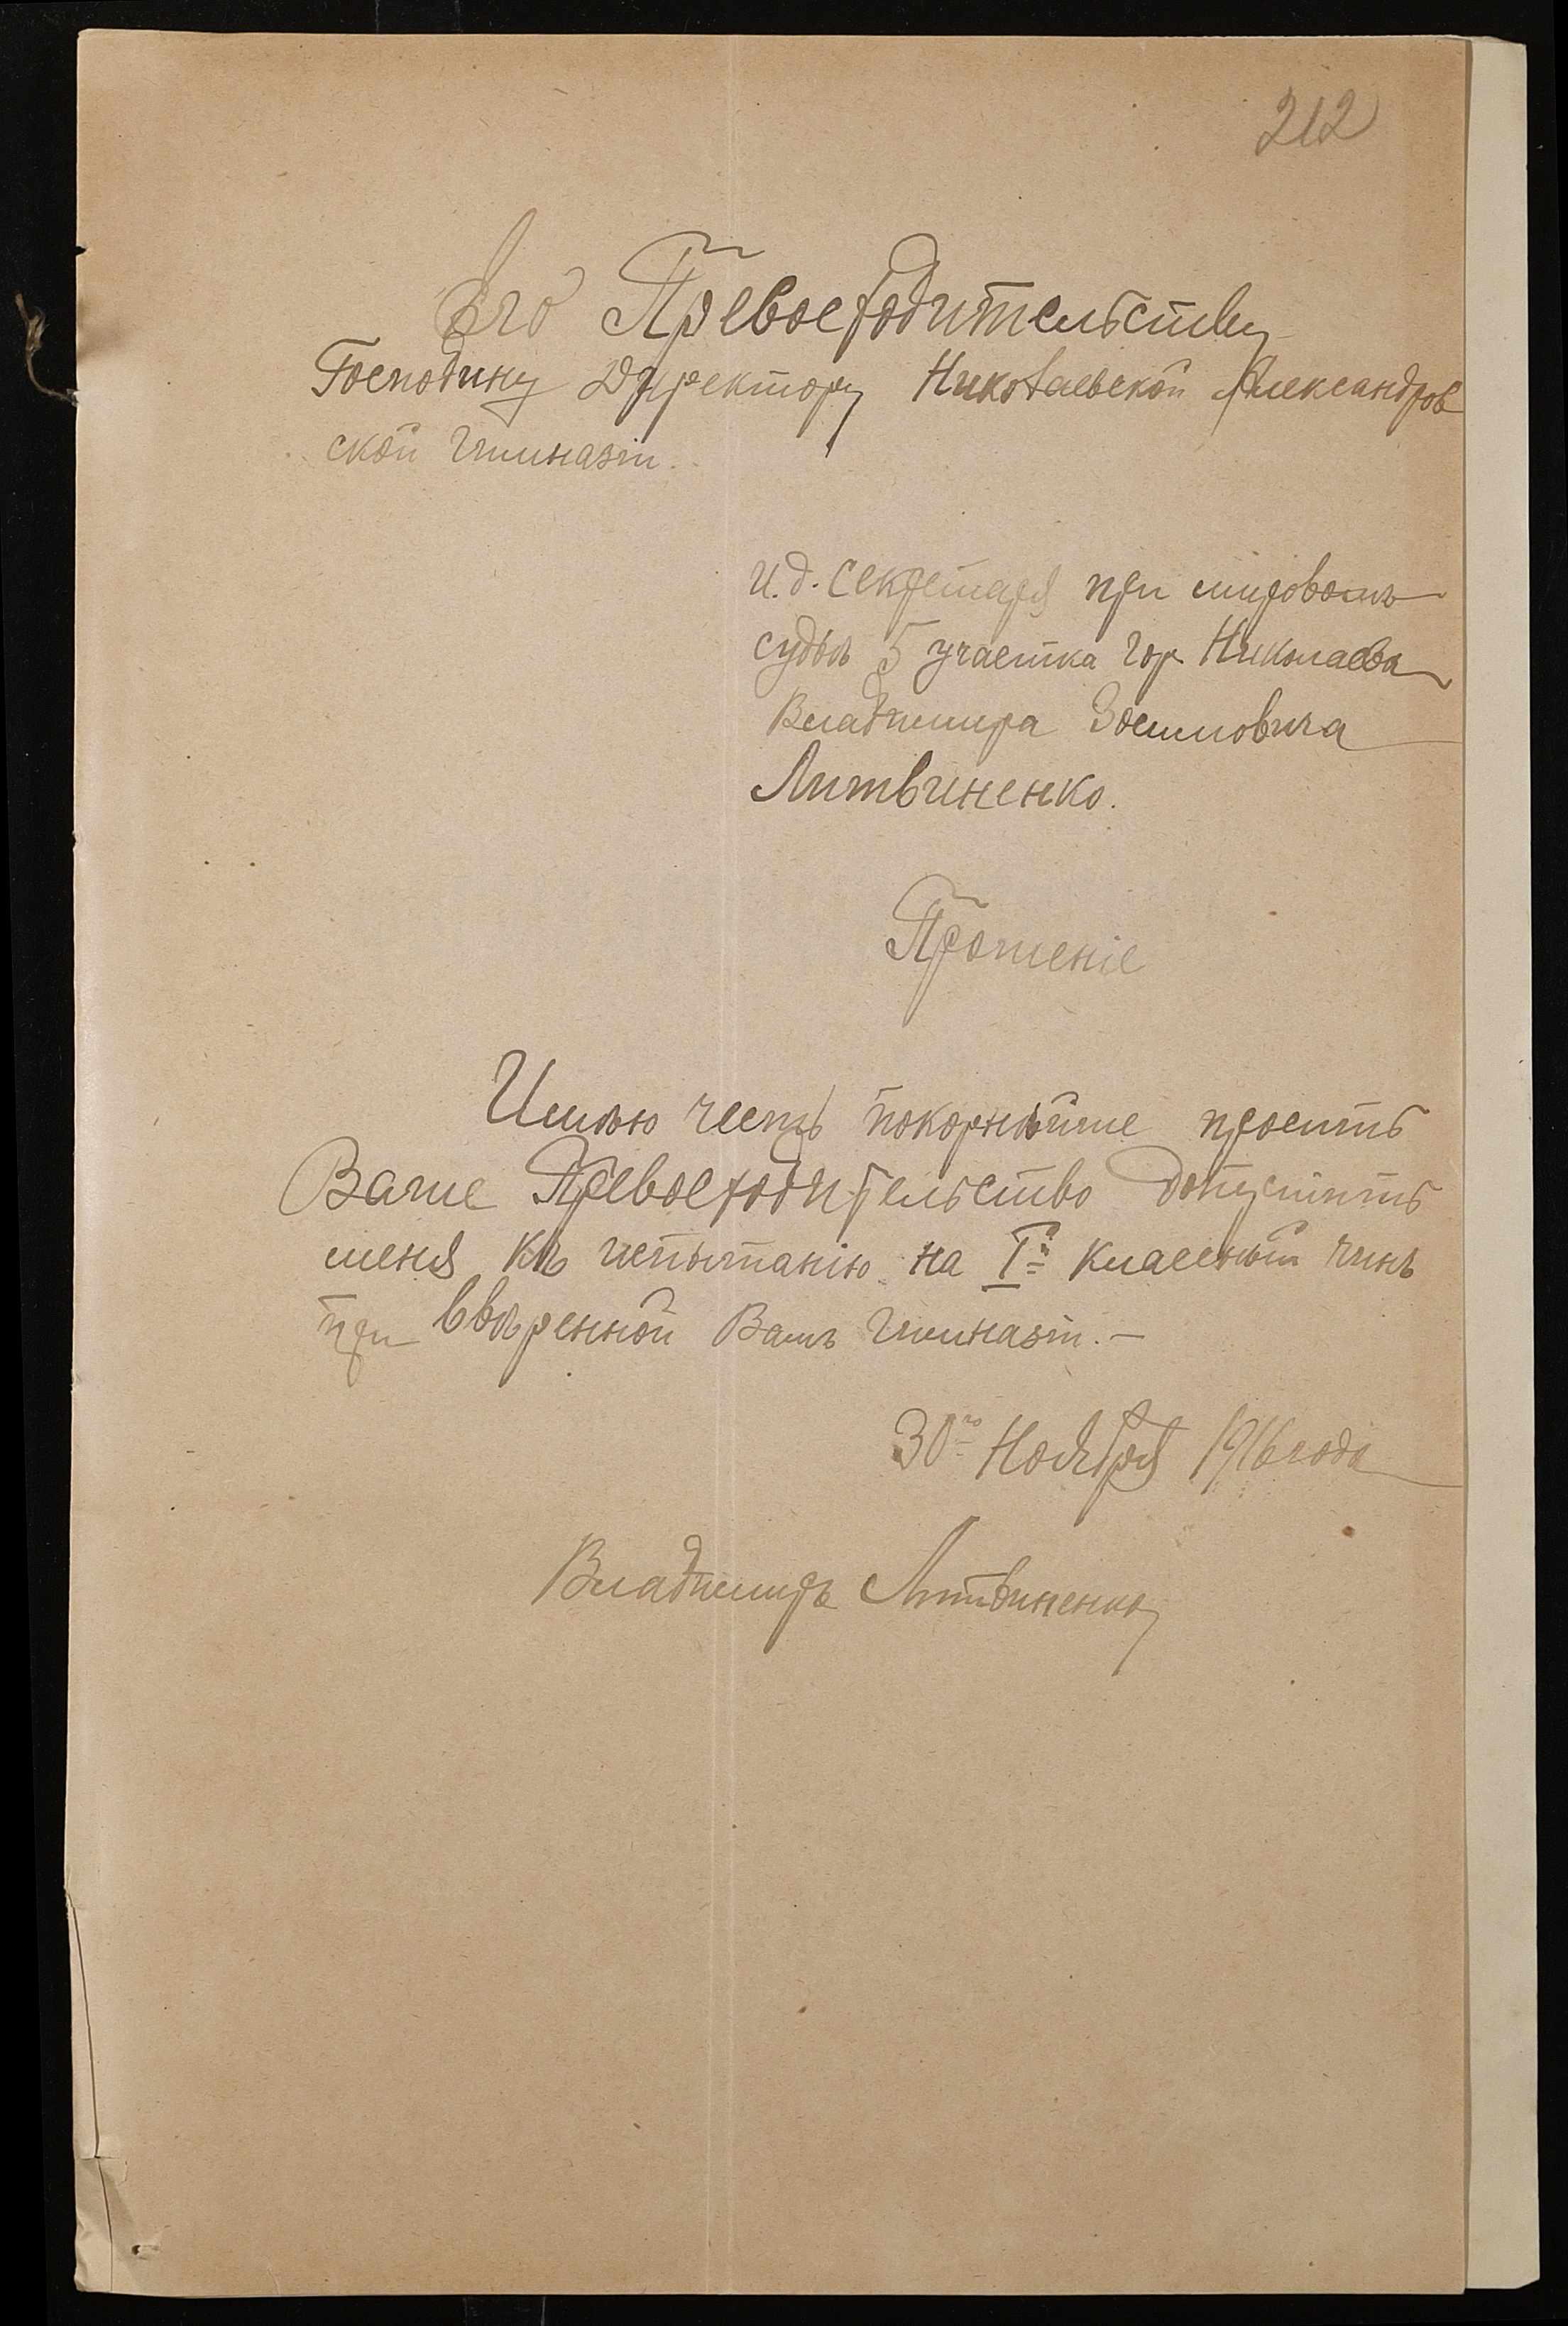 212
Его Превосходительству
Господину Директору Николаевской Александров
ской гимназіи.
И. д. Секретаря при мировомъ
судьѣ 5 участка гор. Николаева
Владимира Зосимовича
Литвиненко.
Прошеніе
Имѣю честь покорнѣйше просить
Ваше Превосходительство допустить
меня къ испытанію на Iй классный чинъ
при ввѣренной Вамъ гимназіи. —
30го Ноября 1916 года
Владимиръ Литвиненко